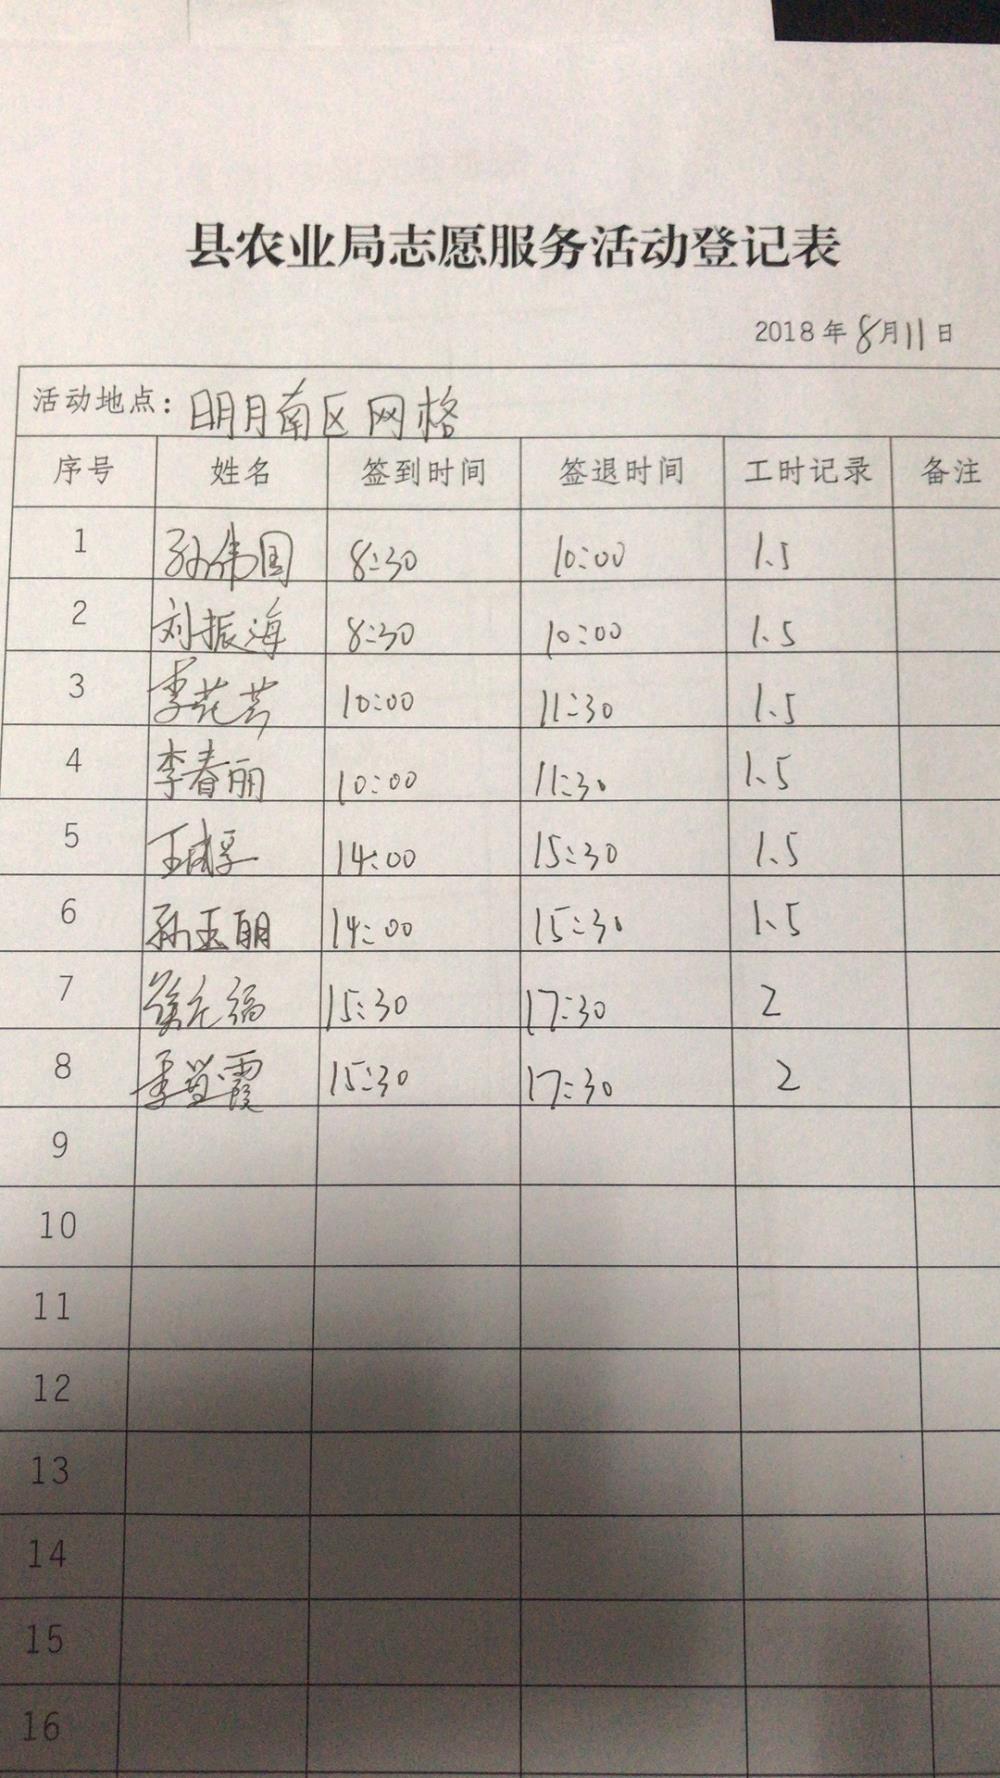 县农业局志愿服务活动登记表
2018年8月11日
活动地点：明月南区网格
序号 姓名 签到时间 签退时间 工时记录 备注
1 孙伟国 8:30 10:00 1.5
2 刘振海 8:30 10:00 1.5
3 李花芳 10:00 11:30 1.5
4 李春丽 10:00 11:30 1.5
5 14:00 15:30 1.5
6 孙玉朋 14:00 15:30 1.5
7 15:30 17:30 2
8 15:30 17:30 2
9
10
11
12
13
14
15
16